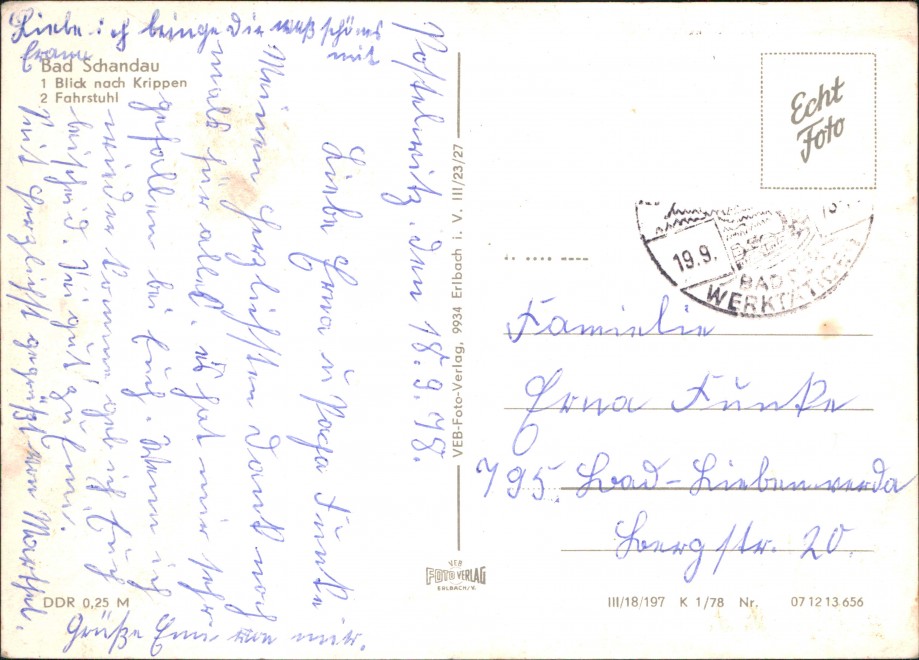 Liebe ich bringe Dir waß schönes
mit
Bad Schandau
1 Blick nach Krippen
2 Fahrstuhl
Postelwitz. den 18.9.78.
Liebe Erna u Papa Funke
Meinen Herzlichsten Dank noch
mals für alles. es hat mir sehr
gefallen bei Euch. Wenn ich
wieder komme geb ich Euch
bescheid.
Seit Herzlichst gegrüßt von Marthel.
Grüße von mir.
VEB-Foto-Verlag, 9934 Erlbach i. V. III/23/27
Echt
Foto
19.9.
BAD
WERKTÄTIGE
Familie
Erna Funke
795. Bad-Liebenwerda
Bergstr. 20.
VEB
FOTO VERLAG
ERLBACH/V.
DDR 0,25 M
III/18/197 K 1/78 Nr. 07 12 13 656